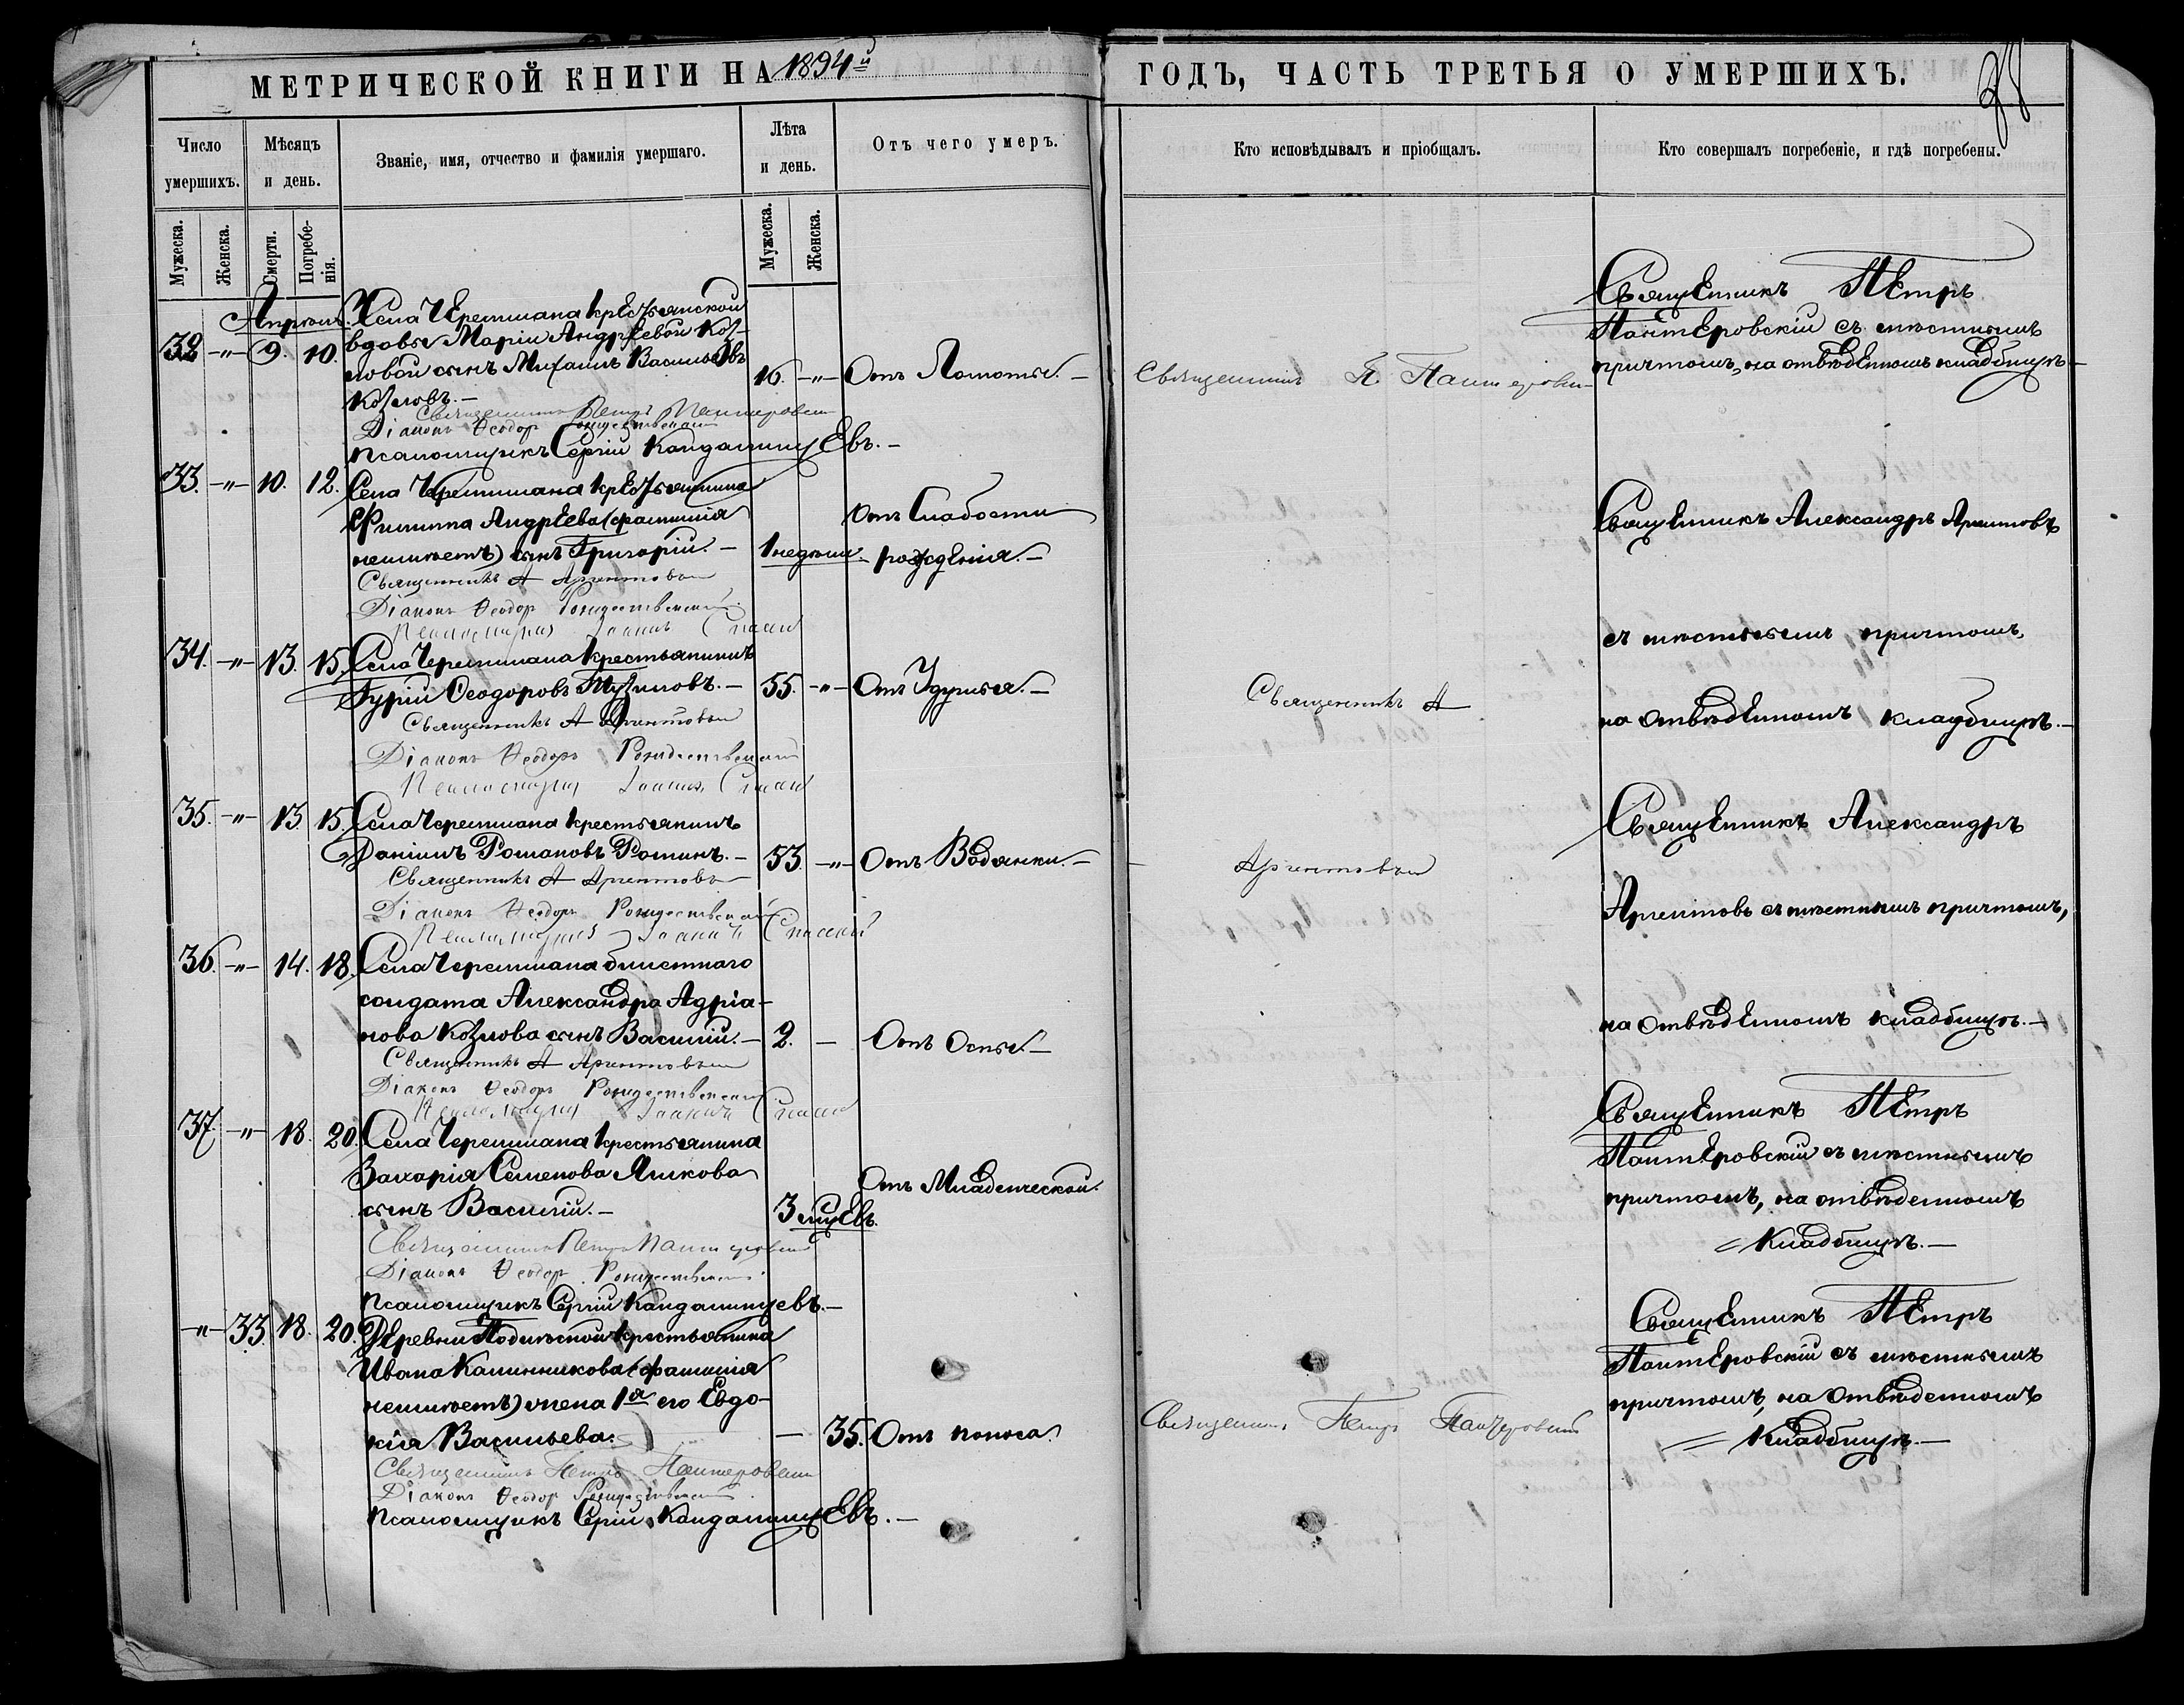 МЕТРИЧЕСКОЙ КНИГИ НА 1894й ГОДЪ, ЧАСТЬ ТРЕТЬЯ О УМЕРШИХЪ.
Число умершихъ.
Мѣсяцъ и день.
Званіе, имя, отчество и фамилія умершаго.
Лѣта и день.
Отъ чего умеръ.
Кто исповѣдывалъ и пріобщалъ.
Кто совершалъ погребеніе, и гдѣ погребены.
Мужеска.
Женска.
Смерти.
Погребе-
нія.
Мужеска.
Женска.
Апрѣль.
32 -"- 9. 10.
Села Черемшана крестьянской
вдовы Маріи Андреевой Коз-
ловой сынъ Михаилъ Васильевъ
Козловъ.-
16. -"- Отъ Ломоты.-
Священникъ П. Пантеровскій
Священникъ Петръ
Пантеровскій съ мѣстнымъ
причтомъ, на отвѣденномъ кладбищѣ.-
Священникъ Петръ Пантеровскій
Діаконъ Ѳеодоръ Рождественскій
Псаломщикъ Сергій Кандалинцевъ.-
33. -"- 10. 12.
Села Черемшана крестьянина
Филиппа Андреева (фамиліи
неимѣетъ) сынъ Григорій.-
1 недѣли.
Отъ Слабости
рожденія.-
Священникъ Александръ Аргентовъ
съ мѣстнымъ причтомъ,
на отвѣденномъ кладбищѣ.-
Священникъ А Аргентовъ
Діаконъ Ѳеодоръ Рождественскій
Псаломщикъ Іоаннъ
34. -"- 13. 15.
Села Черемшана крестьянинъ
Гурій Ѳеодоровъ.-
55. -"- Отъ Удушья.-
Священникъ А
Аргентовъ
Священникъ А Аргентовъ
Діаконъ Ѳеодоръ Рождественскій
Псаломщикъ Іоаннъ
35. -"- 13. 15.
Села Черемшана крестьянинъ
Даніилъ Романовъ Роминъ.-
53. -"- Отъ Водянки.-
Священникъ Александръ
Аргентовъ съ мѣстнымъ причтомъ,
на отвѣденномъ кладбищѣ.-
Священникъ А Аргентовъ
Діаконъ Ѳеодоръ Рождественскій
Псаломщикъ Іоаннъ Спасскій
36. -"- 14. 18.
Села Черемшана билетнаго
солдата Александра Адріа-
нова Козлова сынъ Василій.-
2. - Отъ Оспы.-
Священникъ А Аргентовъ
Діаконъ Ѳеодоръ Рождественскій
Псаломщикъ Іоаннъ
37. -"- 18. 20.
Села Черемшана крестьянина
Захарія Семенова Яшкова
сынъ Василій.-
3 мцевъ.
Отъ Младенческой.
Священникъ Петръ
Пантеровскій съ мѣстнымъ
причтомъ, на отвѣденномъ
кладбищѣ.-
Священникъ Петръ Пантеровскій
Діаконъ Ѳеодоръ Рождественскій
Псаломщикъ Сергій Кандалинцевъ.-
-"- 33. 18. 20.
Деревни крестьянина
Ивана Калинникова (фамиліи
неимѣетъ) жена 1я его Евдо-
кія Васильева.
- 35. Отъ поноса.
Священникъ Петръ Пантеровскій
Священникъ Петръ
Пантеровскій съ мѣстнымъ
причтомъ, на отвѣденномъ
кладбищѣ.-
Священникъ Петръ Пантеровскій
Діаконъ Ѳеодоръ Рождественскій
Псаломщикъ Сергій Кандалинцевъ.-